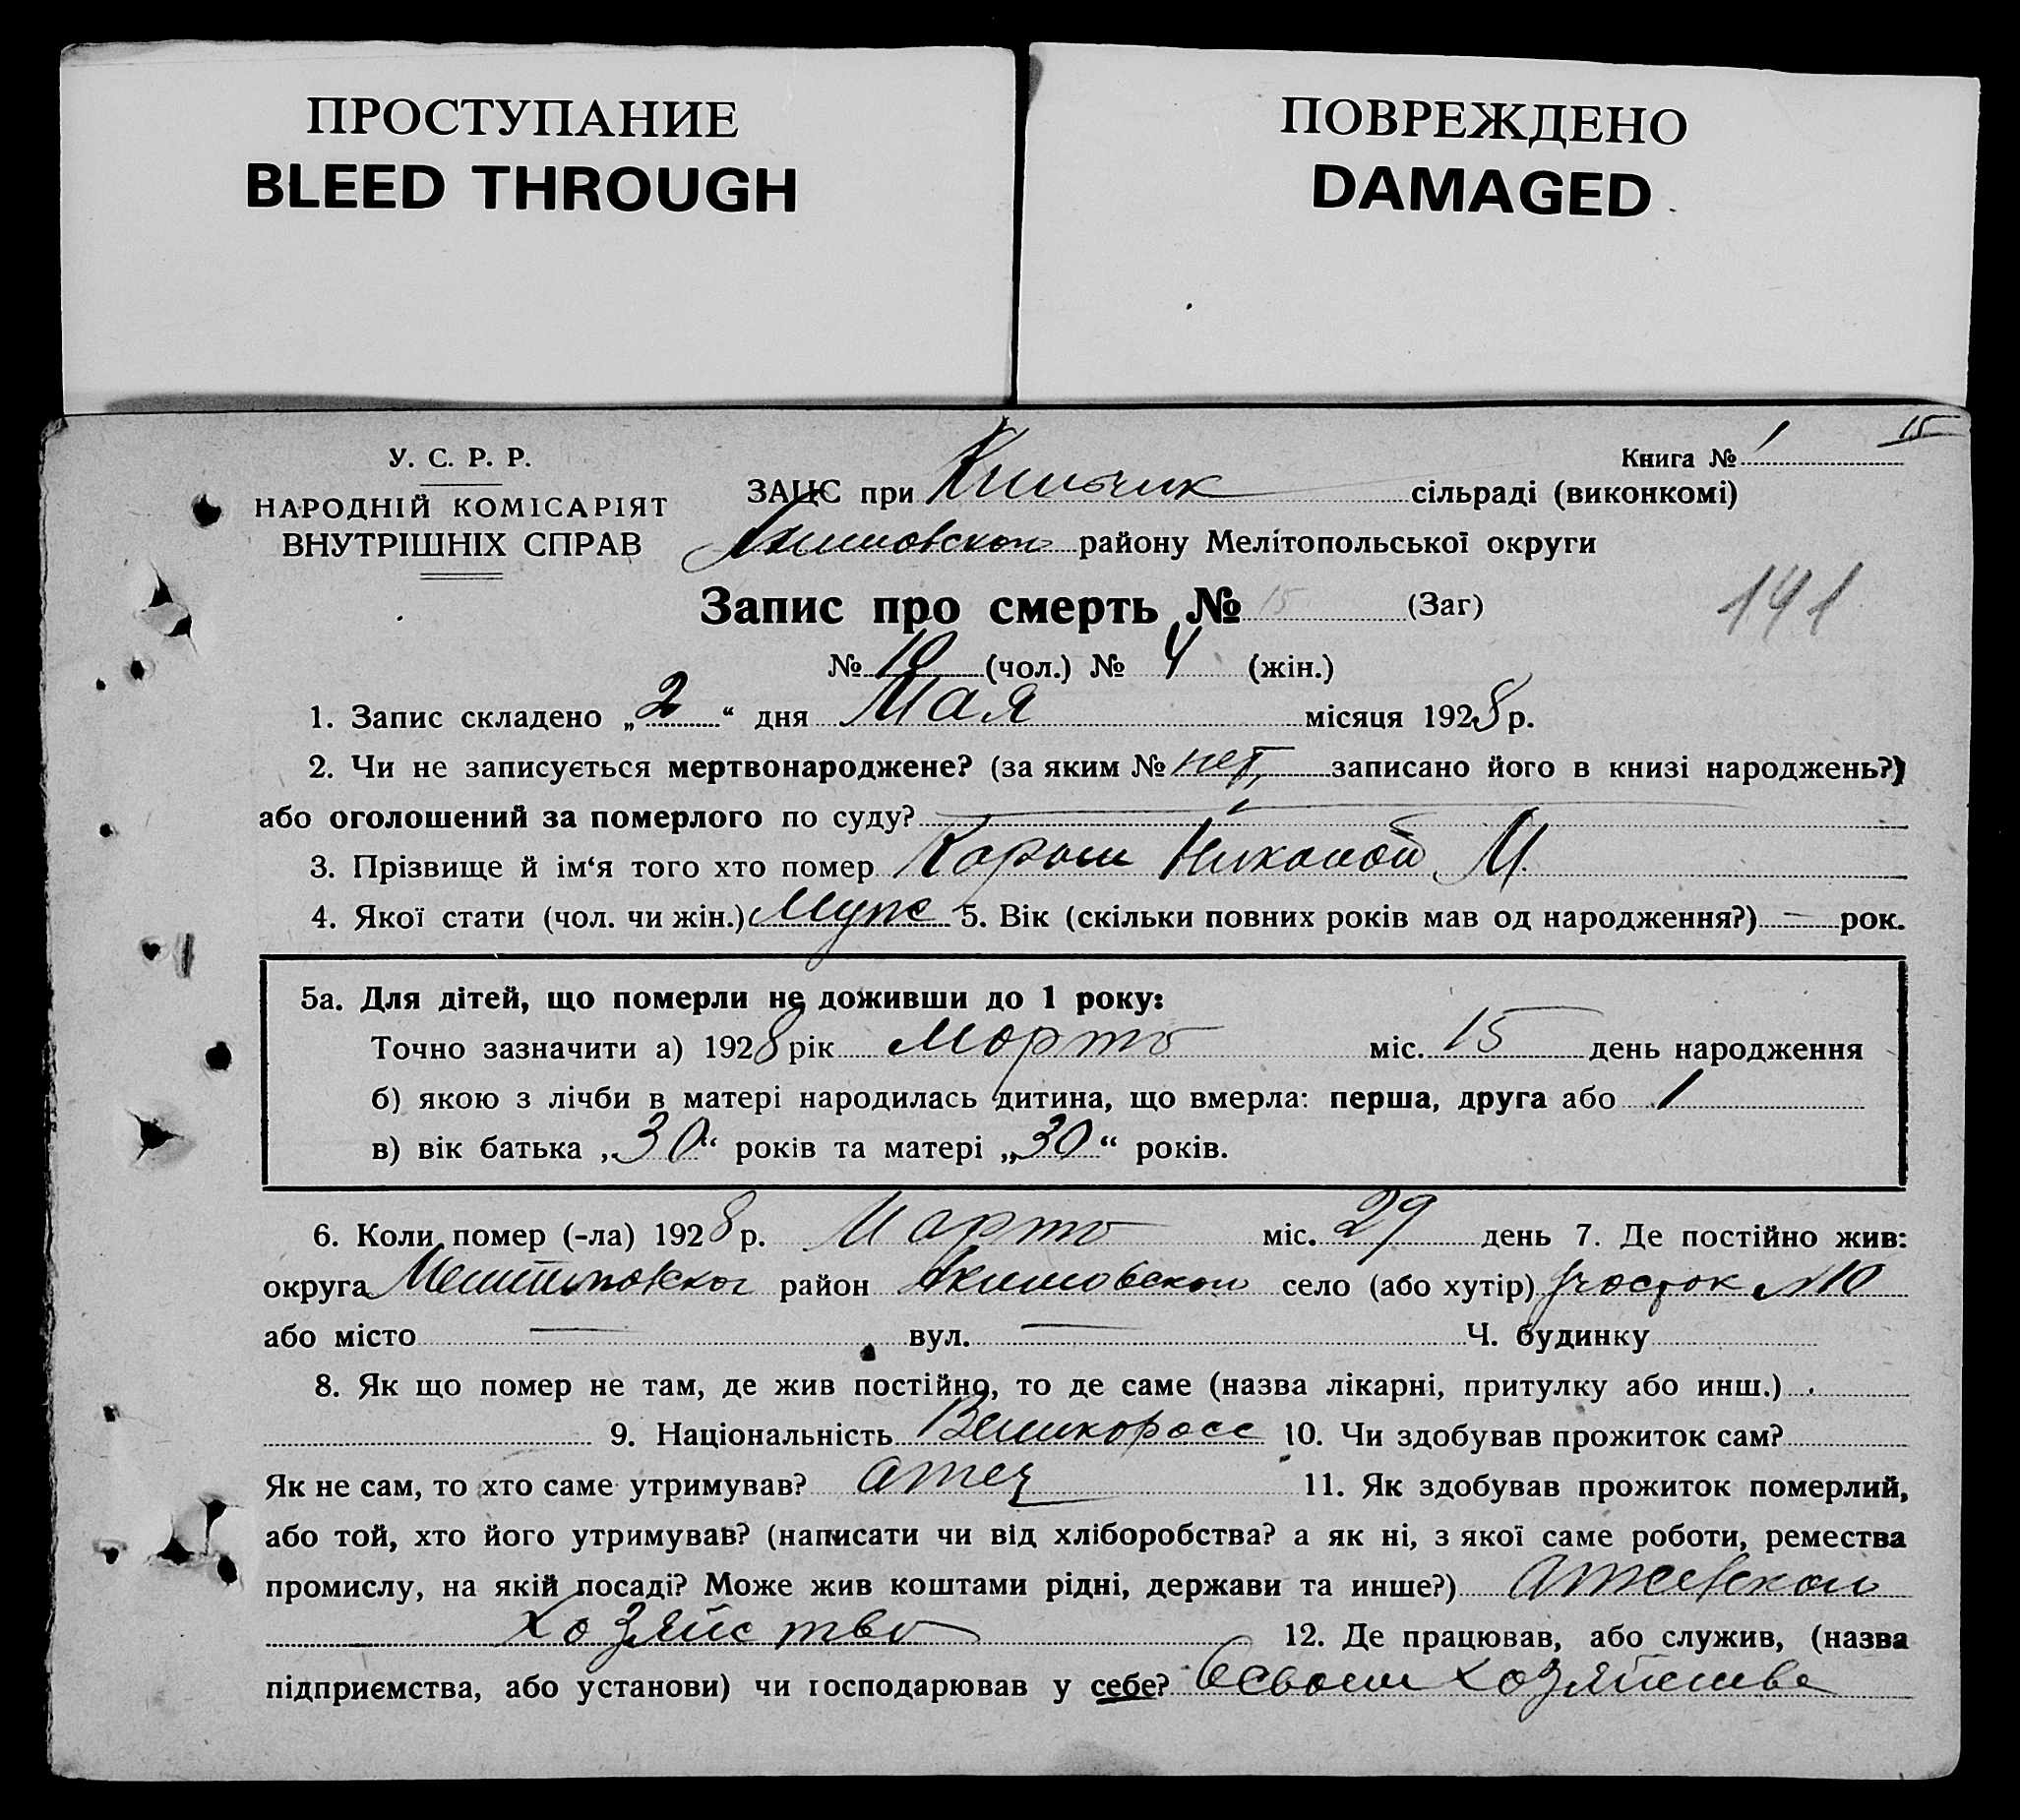 ПРОСТУПАНИЕ
BLEED THROUGH
ПОВРЕЖДЕНО
DAMAGED
15
У. С. Р. Р.
НАРОДНІЙ КОМІСАРІЯТ
ВНУТРІШНІХ СПРАВ
Книга № 1
ЗАЦС при сільраді (виконкомі)
Акимовском району Мелітопольської округи
Запис про смерть № 15 (Заг)
141
№ 10 (чол.) № 4 (жін.)
1. Запис складено „2“ дня Мая місяця 1928 р.
2. Чи не записується мертвонароджене? (за яким № нет записано його в книзі народжень?)
або оголошений за померлого по суду?
3. Прізвище й ім‘я того хто помер М.
4. Якої стати (чол. чи жін.) Муж 5. Вік (скільки повних років мав од народження?) — рок.
5а. Для дітей, що померли не доживши до 1 року:
Точно зазначити а) 1928 рік Марта міс. 15 день народження
б) якою з лічби в матері народилась дитина, що вмерла: перша, друга або 1
в) вік батька „30“ років та матері „30“ років.
6. Коли помер (-ла) 1928 р. Марта міс. 29 день 7. Де постійно жив:
округа район Акимовском село (або хутір) участок №10
або місто — вул. — Ч. будинку
8. Як що помер не там, де жив постійно, то де саме (назва лікарні, притулку або инш.)
9. Національність Великоросс 10. Чи здобував прожиток сам?
Як не сам, то хто саме утримував? атец 11. Як здобував прожиток померлий,
або той, хто його утримував? (написати чи від хліборобства? а як ні, з якої саме роботи, ремества
промислу, на якій посаді? Може жив коштами рідні, держави та инше?)
хозяйство 12. Де працював, або служив, (назва
підприємства, або установи) чи господарював у себе? Всвоем хозяйстве